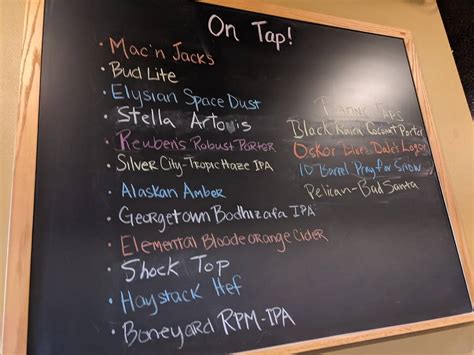 On Tap!
• Mac'n Jacks
• Bud Lite
• Elysian Space Dust
• Stella Artouis
• Reubens Robust Porter
• Silver City-Tropic Haze IPA
• Alaskan Amber
• Georgetown Bodhizafa IPA
• Elemental Bloodeorange Cider
• Shock Top
• Haystack Hef
• Boneyard RPM-IPA
Taps
Black Raven Coconut Porter
Oskar Blues Dales Lager
10 Barrel Pray for Snow
Pelican-Bad Santa